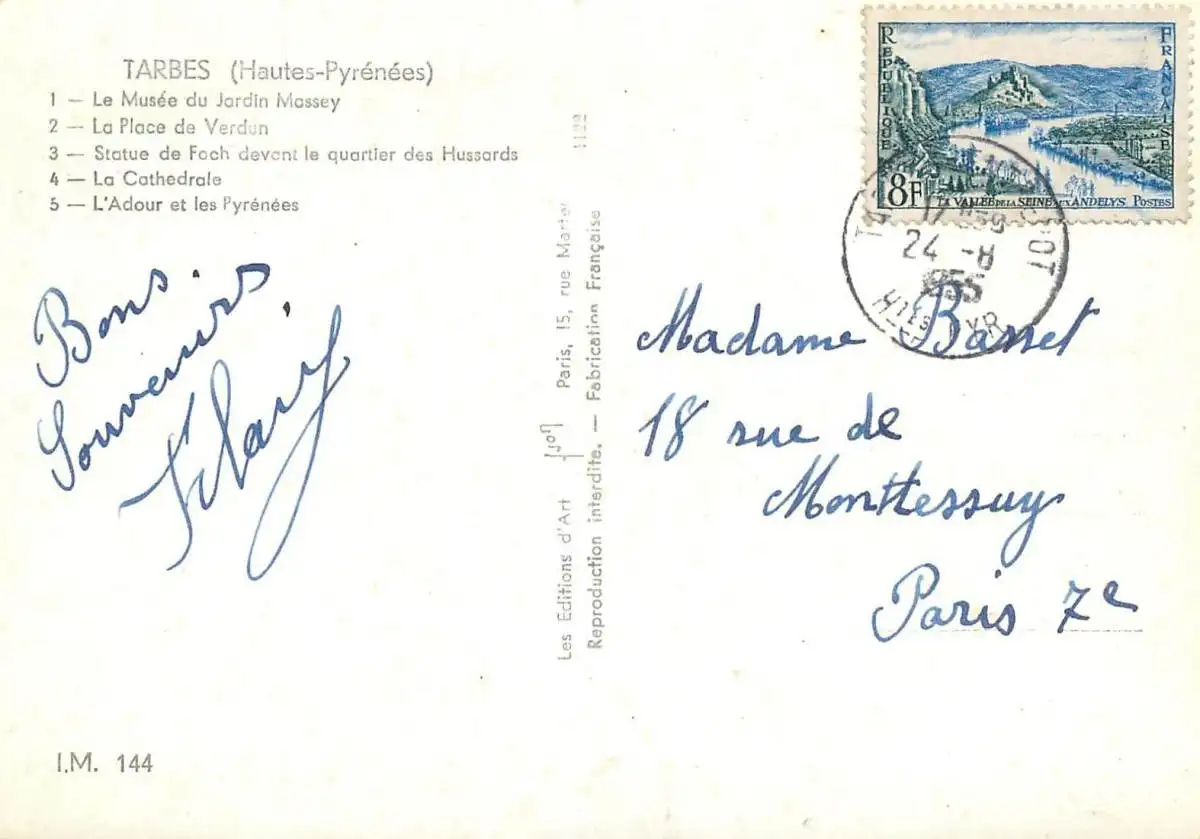 TARBES (Hautes-Pyrénées)
1 — Le Musée du Jardin Massey
2 — La Place de Verdun
3 — Statue de Foch devant le quartier des Hussards
4 — La Cathedrale
5 — L'Adour et les Pyrénées
Bons
Souvenirs
I.M. 144
1122
Les Editions d'Art yvon Paris, 15, rue Martel
Reproduction interdite. — Fabrication Française
REPUBLIQUE
FRANÇAISE
8F
LA VALLÉE DE LA SEINE AUX ANDELYS POSTES
24 -8
1955
Htes PYR
Madame Basset
18 rue de
Monttessuy
Paris 7e